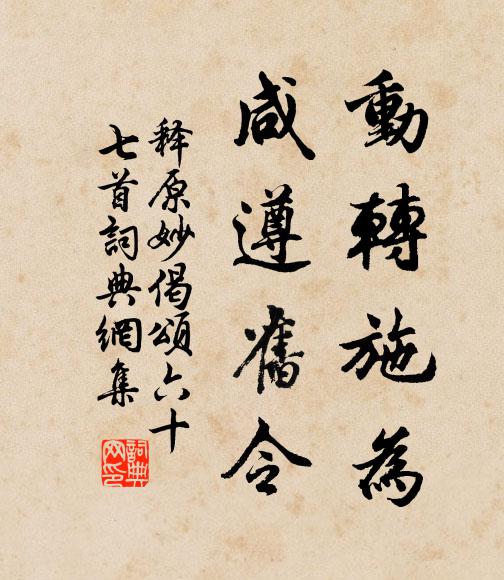 動轉施為
咸遵舊令
释原妙偈頌六十
七首詞典網集
詞典
网印